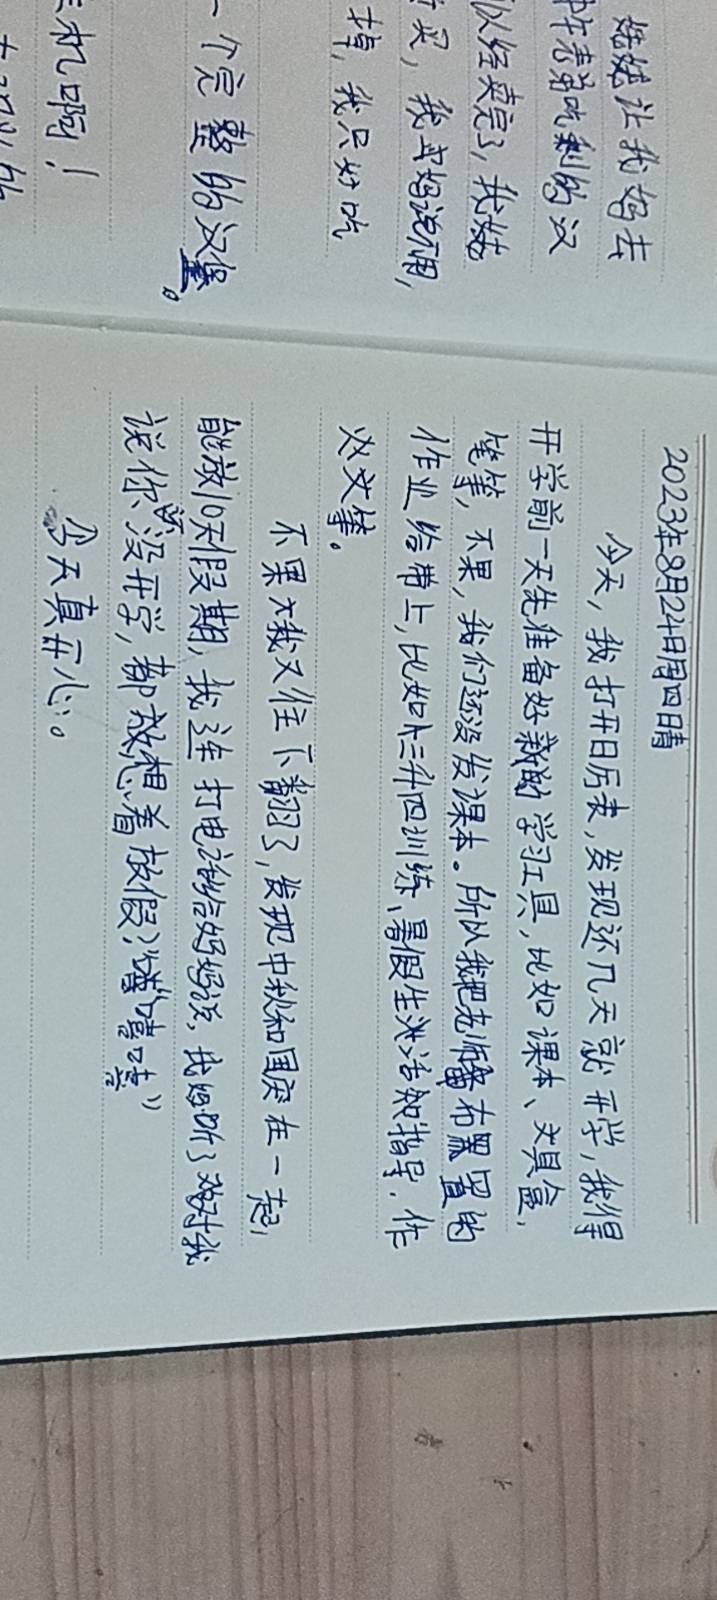 姥姥让我妈去
昨天弟吃剩的汉
以经卖完了,我姥
买,我与妈说俩,
掉,我只好吃
一个完整的汉堡。
机啊!
2023年8月24日周四晴
今天,我打开日历表,发现还几天就开学,我得
开学前一天先准备好新的学习工具,比如课本、文具盒、
笔等,不果,我们还没发课本。所以我把老师布置的
作业给带上,比如卜三升四训练、暑假生活和指导、作
业文等。
不果我又往下翻了,发现中秋和国庆在一起,
能放10天假期,我连打电话给妈妈说,我妈听了对我
说“你都没开学,都想着放假”,嘻嘻嘻”
今天真开心。